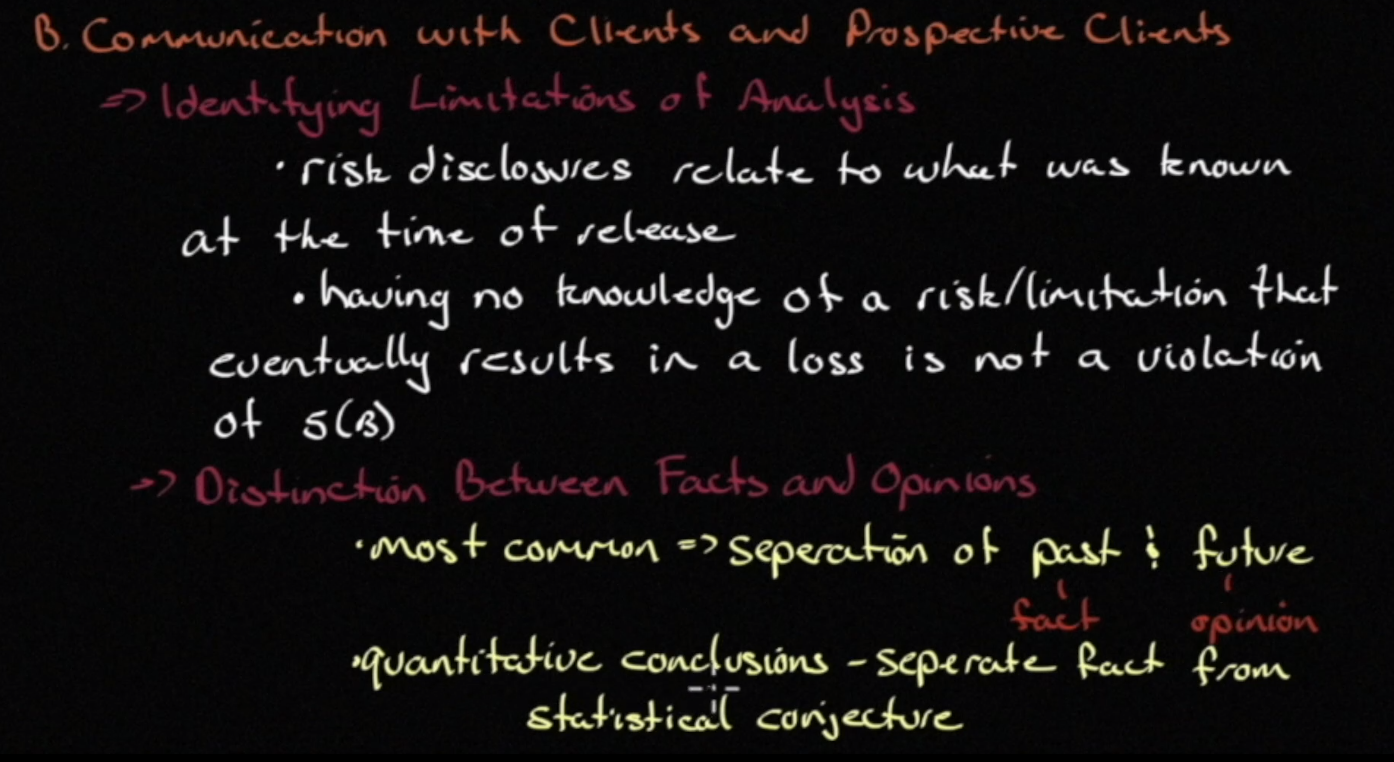 B. Communication with Clients and Prospective Clients
=> Identifying Limitations of Analysis
• risk disclosures relate to what was known
at the time of release
• having no knowledge of a risk/limitation that
eventually results in a loss is not a violation
of 5(B)
-> Distinction Between Facts and Opinions
• most common => seperation of past & future
fact opinion
• quantitative conclusions - seperate fact from
statistical conjecture